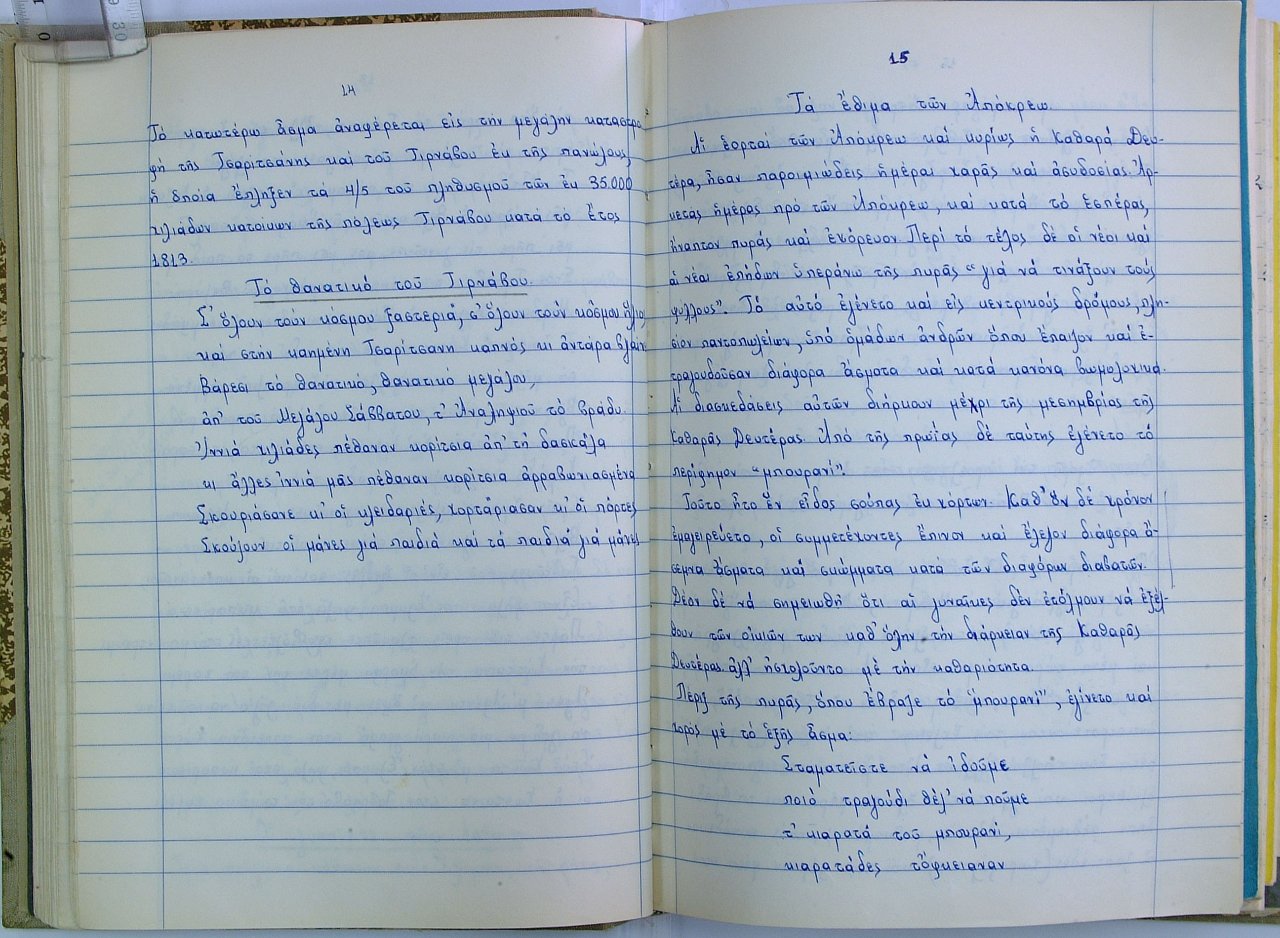 14
Τό κατωτέρω ᾆσμα ἀναφέρεται εἰς τήν μεγάλην καταστρο
φή τῆς Τσαρίτσάνης καί τοῦ Τιρνάβου ἐκ τῆς πανώλους,
ἡ ὁποία ἔπληξεν τά 4/5 τοῦ πληθυσμοῦ τῶν ἐκ 35.000
χιλιάδων κατοίκων τῆς πόλεως Τιρνάβου κατά τό ἔτος
1813.
Τό θανατικό τοῦ Τιρνάβου.
Σ' ὅλουν τούν κόσμου ξαστεριά, σ' ὅλουν τούν κόσμου ἥλιο
καί στήν καημένη Τσαρίτσανη καπνός κι ἀντάρα βγαίν
Βάρεσι τό θανατικό, θανατικό μεγάλου,
ἀπ' τοῦ Μεγάλου Σάββατου, τ' Ἀναληψιοῦ τό βράδυ.
Ἰννιά χιλιάδες πέθαναν κορίτσια ἀπ' τή δασκάλα
κι ἄλλες ἰννιά μᾶς πέθαναν κορίτσια ἀρραβωνιασμένα
Σκουριάσανε κι' οἱ κλειδαριές, χορτάριασαν κι' οἱ πόρτες
Σκούζουν οἱ μάνες γιά παιδιά καί τά παιδιά γιά μάνες
15
Τά ἔθιμα τῶν Ἀπόκρεω.
Αἱ ἑορταί τῶν Ἀπόκρεω καί κυρίως ἡ Καθαρά Δευ-
τέρα, ἦσαν παροιμιώδεις ἡμέραι χαρᾶς καί ἀσυδοσίας. Ἀρ-
κετάς ἡμέρας πρό τῶν Ἀπόκρεω, καί κατά τό ἑσπέρας,
ἥναπτον πυράς καί ἐχόρευον. Περί τό τέλος δέ οἱ νέοι καί
αἱ νέαι ἐπήδων ὑπεράνω τῆς πυρᾶς "γιά νά τινάξουν τούς
ψύλλους". Τό αὐτό ἐγένετο καί εἰς κεντρικούς δρόμους, πλη-
σίον παντοπωλείων, ὑπό ὁμάδων ἀνδρῶν ὅπου ἔπαιζον καί ἐ-
τραγουδοῦσαν διάφορα ᾄσματα καί κατά κανόνα βωμολοχικά.
Αἱ διασκεδάσεις αὐτῶν διήρκουν μέχρι τῆς μεσημβρίας τῆς
Καθαρᾶς Δευτέρας. Ἀπό τῆς πρωΐας δέ ταύτης ἐγένετο τό
περίφημον "μπουρανί".
Τοῦτο ἦτο ἕν εἶδος σούπας ἐκ χόρτων. Καθ' ὅν δέ χρόνον
ἐμαγειρεύετο, οἱ συμμετέχοντες ἔπινον καί ἔλεγον διάφορα ἄ-
σεμνα ᾄσματα καί σκώμματα κατά τῶν διαφόρων διαβατῶν.
Δέον δέ νά σημειωθῆ ὅτι αἱ γυναῖκες δέν ἐτόλμουν νά ἐξέλ-
θουν τῶν οἰκιῶν των καθ' ὅλην τήν διάρκειαν τῆς Καθαρᾶς
Δευτέρας ἀλλ' ἠσχολοῦντο μέ τήν καθαριότητα.
Πέριξ τῆς πυρᾶς, ὅπου ἔβραζε τό "μπουρανί", ἐγίνετο καί
χορός μέ τό ἑξῆς ᾆσμα:
Σταματεῖστε νά ἰδοῦμε
ποιό τραγούδι θέλ' νά ποῦμε
τ' κιαρατά τοῦ μπουρανί,
κιαρατάδες τὄφκειαναν